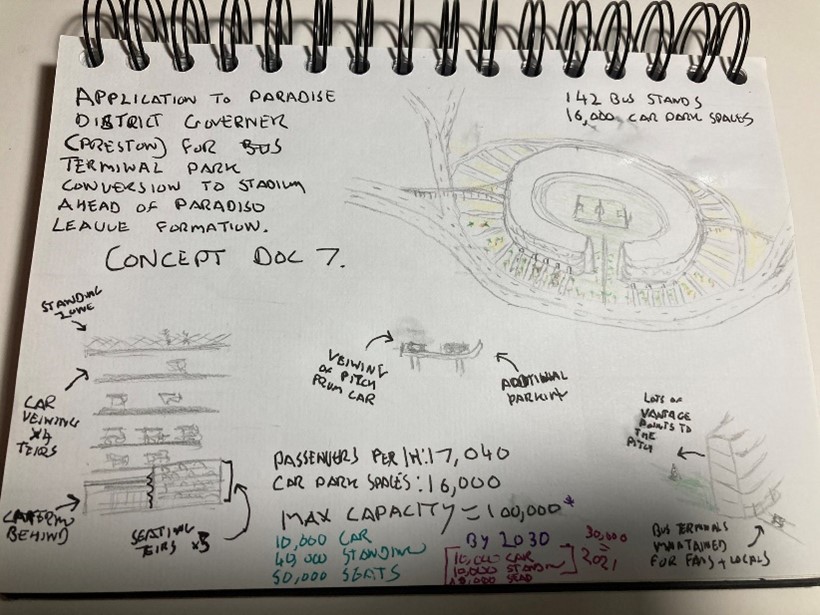 APPLICATION TO PARADISE
DISTRICT GOVERNER
(PRESTON) FOR BUS
TERMINAL PARK
CONVERSION TO STADIUM
AHEAD OF PARADISO
LEAUUE FORMATION.
CONCEPT DOC 7.
142 BUS STANDS
16,000 CAR PARK SPACES
STANDING
ZONE
CAR
VEIWING
X4
TEIRS
CATERING
BEHIND
SEATING
TEIRS X3
VEIWING
OF PITCH
FROM CAR
ADDITIONAL
PARKING
LOTS OF
VANTAGE
POINTS TO
THE
PITCH
BUS TERMINALS
MAINTAINED
FOR FANS + LOCALS
PASSENGERS PER H:17,040
CAR PARK SPACES:16,000
MAX CAPACITY = 100,000*
10,000 CAR
40,000 STANDING
50,000 SEATS
BY 2030
10,000 CAR
10,000 STANDIN
10,000 SEAD
30,000
=
2021